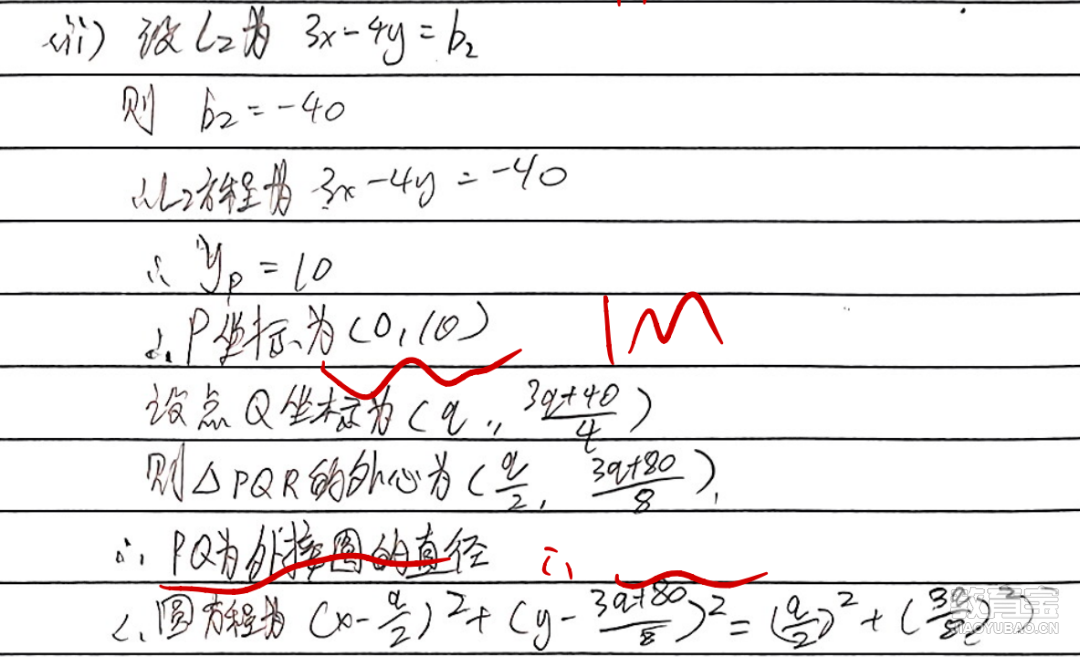 (iii) 设L2为 3x-4y=b₂
则 b₂=-40
∴L2方程为 3x-4y=-40
∴ yₚ=10
∴P坐标为(0,10) 1M
设点Q坐标为(q, (3q+40)/4)
则△PQR的外心为(q/2, (3q+80)/8),
∴PQ为外接圆的直径
∴圆方程为 (x-q/2)²+(y-(3q+80)/8)²=(q/2)²+(3q/8)²
教育宝
JIAOYUBAO.CN